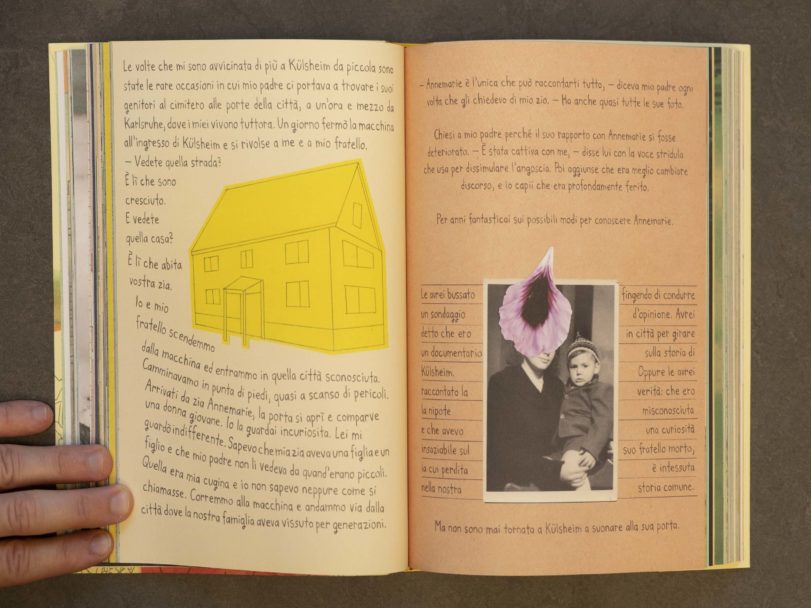 Le volte che mi sono avvicinata di più a Külsheim da piccola sono
state le rare occasioni in cui mio padre ci portava a trovare i suoi
genitori al cimitero alle porte della città, a un'ora e mezzo da
Karlsruhe, dove i miei vivono tuttora. Un giorno fermò la macchina
all'ingresso di Külsheim e si rivolse a me e a mio fratello.
– Vedete quella strada?
È lì che sono
cresciuto.
E vedete
quella casa?
È lì che abita
vostra zia.
Io e mio
fratello scendemmo
dalla macchina ed entrammo in quella città sconosciuta.
Camminavamo in punta di piedi, quasi a scanso di pericoli.
Arrivati da zia Annemarie, la porta si aprì e comparve
una donna giovane. Io la guardai incuriosita. Lei mi
guardò indifferente. Sapevo che mia zia aveva una figlia e un
figlio e che mio padre non li vedeva da quand'erano piccoli.
Quella era mia cugina e io non sapevo neppure come si
chiamasse. Corremmo alla macchina e andammo via dalla
città dove la nostra famiglia aveva vissuto per generazioni.
– Annemarie è l'unica che può raccontarti tutto, – diceva mio padre ogni
volta che gli chiedevo di mio zio. – Ha anche quasi tutte le sue foto.
Chiesi a mio padre perché il suo rapporto con Annemarie si fosse
deteriorato. – È stata cattiva con me, – disse lui con la voce stridula
che usa per dissimulare l'angoscia. Poi aggiunse che era meglio cambiare
discorso, e io capii che era profondamente ferito.
Per anni fantasticai sui possibili modi per conoscere Annemarie.
Le avrei bussato fingendo di condurre
un sondaggio d'opinione. Avrei
detto che ero in città per girare
un documentario sulla storia di
Külsheim. Oppure le avrei
raccontato la verità: che ero
la nipote misconosciuta
e che avevo una curiosità
insaziabile sul suo fratello morto,
la cui perdita è intessuta
nella nostra storia comune.
Ma non sono mai tornata a Külsheim a suonare alla sua porta.